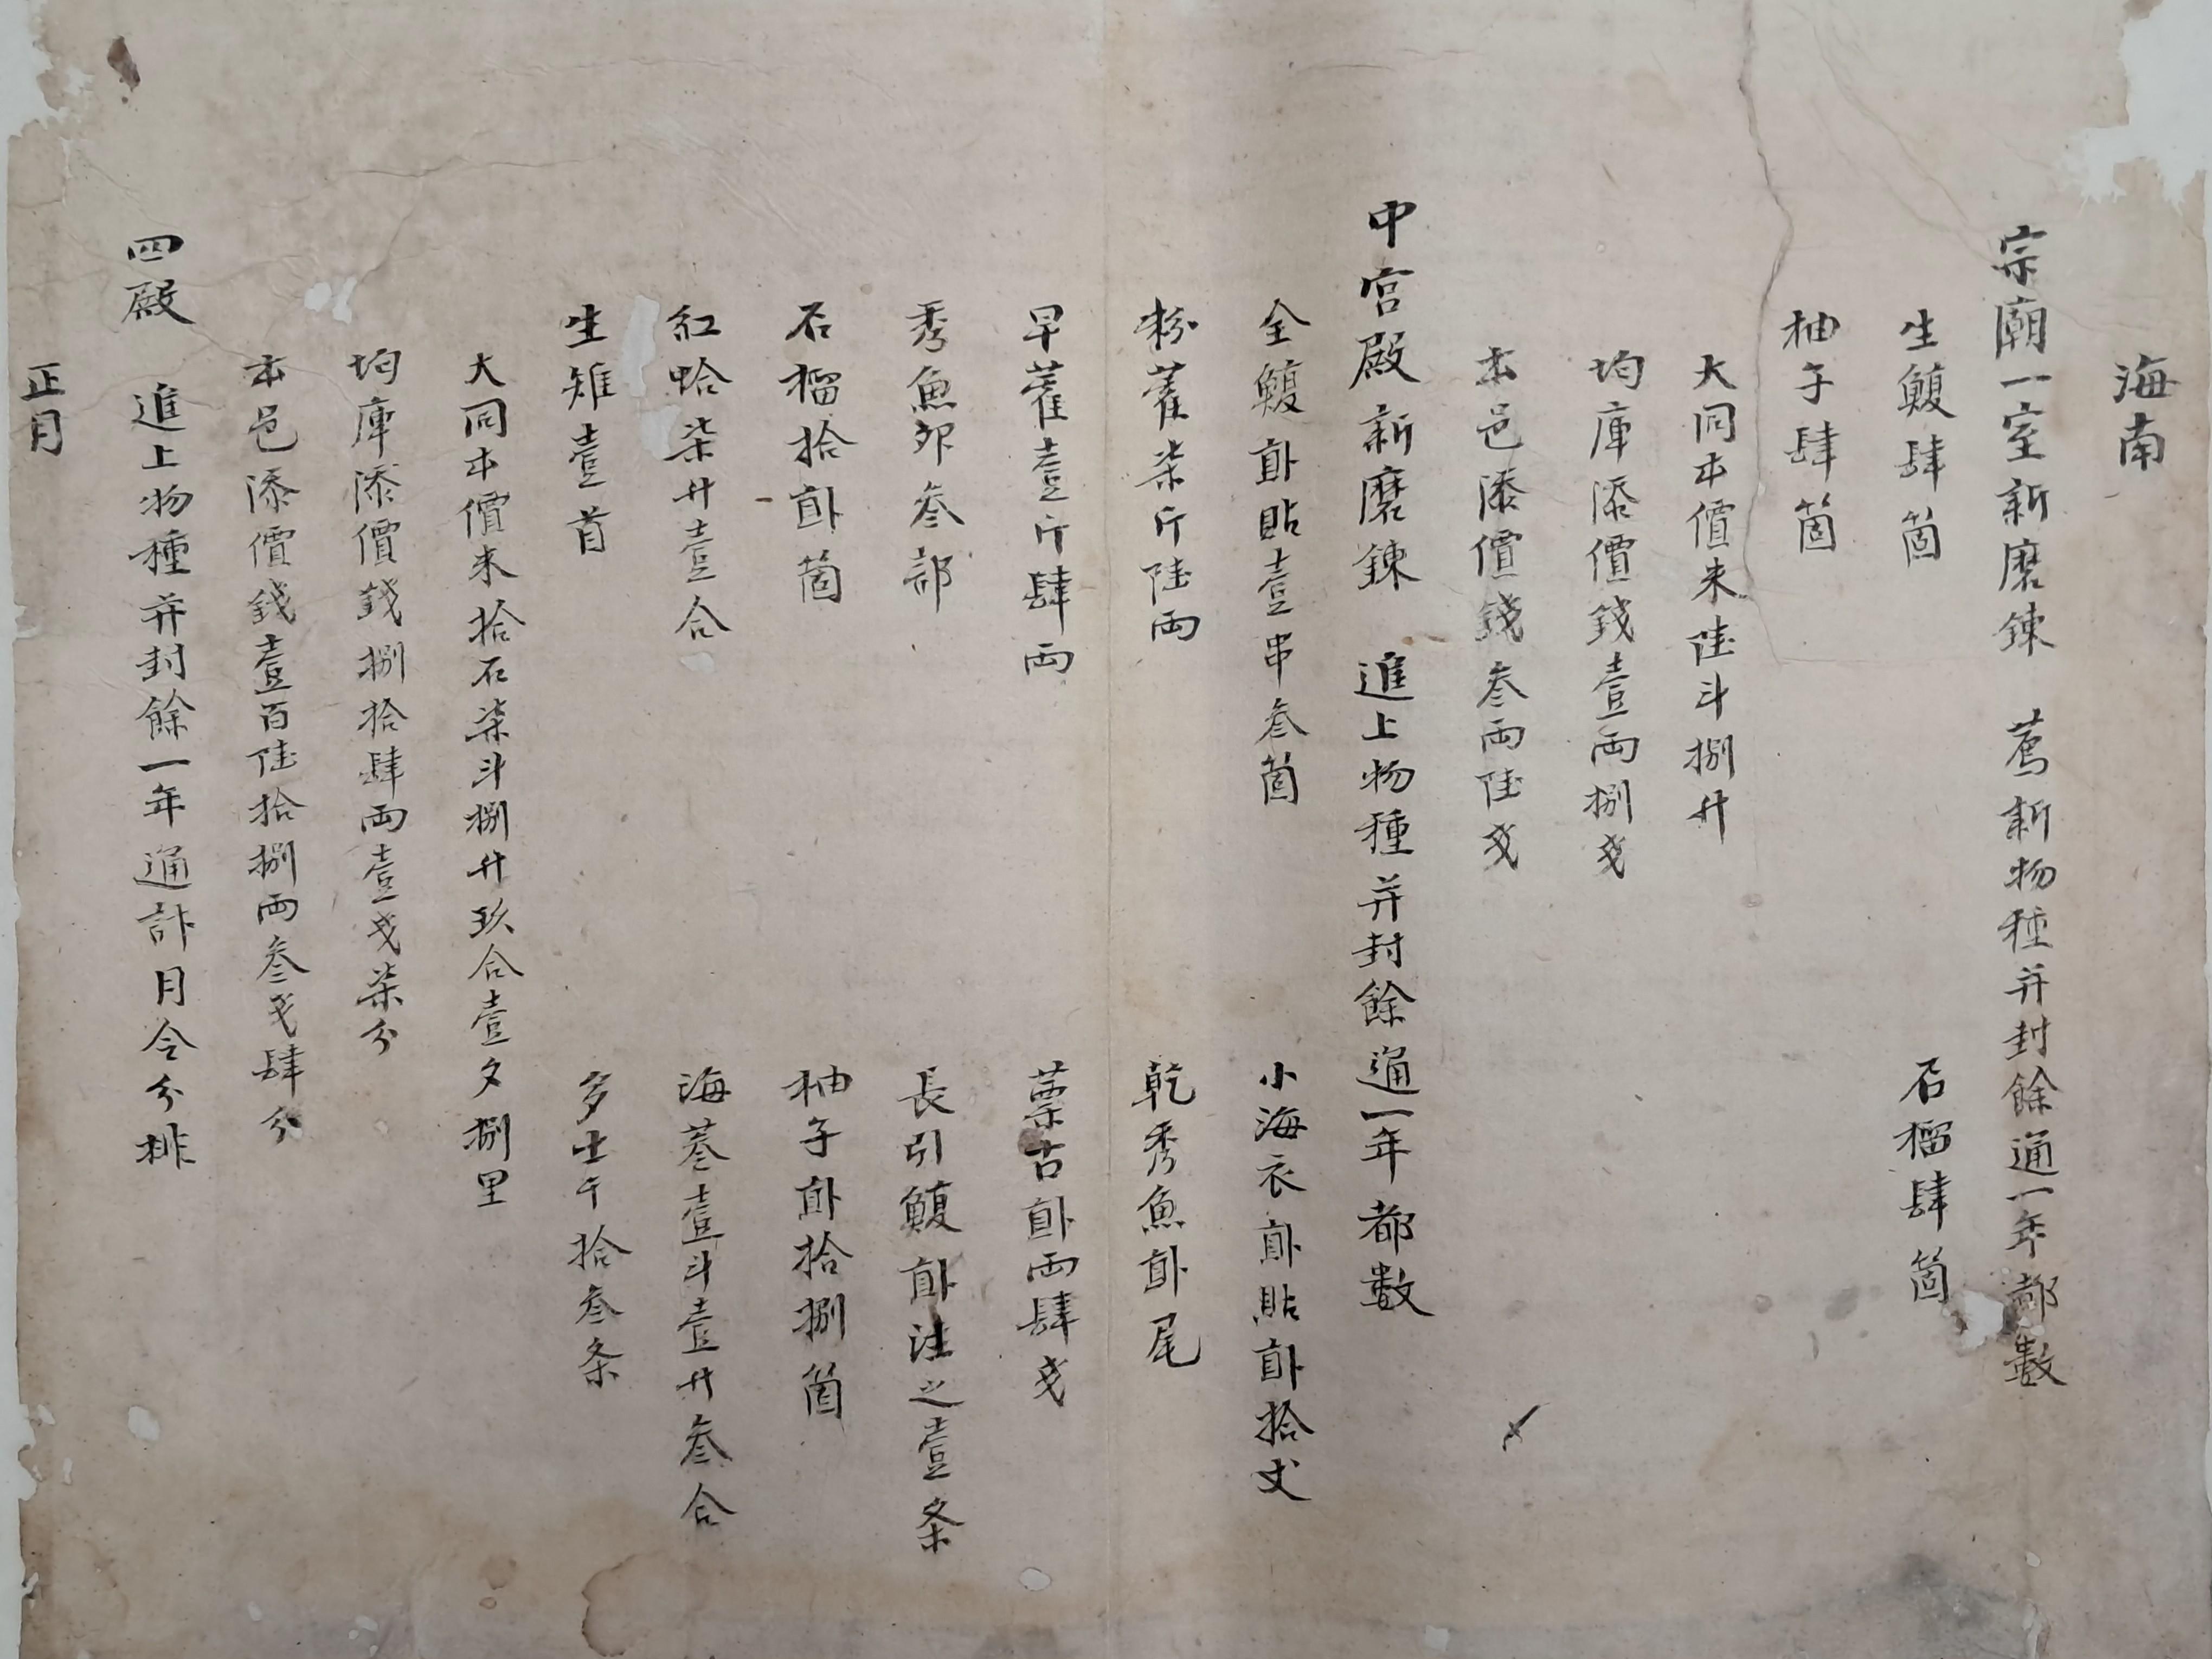 海南
宗廟一室新磨鍊 薦新物種并封餘通一年都數
生鰒肆箇 石榴肆箇
柚子肆箇
大同本價米陸斗捌升
均庫添價錢壹兩捌戔
本邑添價錢叄兩陸戔
中宮殿新磨鍊 進上物種并封餘通一年都數
全鰒貳貼壹串叄箇 小海衣貳貼貳拾丈
粉藿柒斤陸兩 乾秀魚貳尾
早藿壹斤肆兩 藁古貳兩肆戔
秀魚卵叄部 長引鰒貳注之壹条
石榴拾貳箇 柚子貳拾捌箇
紅蛤柒升壹合 海蔘壹斗壹升叄合
生雉壹首 多士亇拾叄条
大同本價米拾石柒斗捌升玖合壹夕捌里
均庫添價錢捌拾肆兩壹戔柒分
本邑添價錢壹百陸拾捌兩叄戔肆分
四殿 進上物種并封餘一年通計月令分排
正月